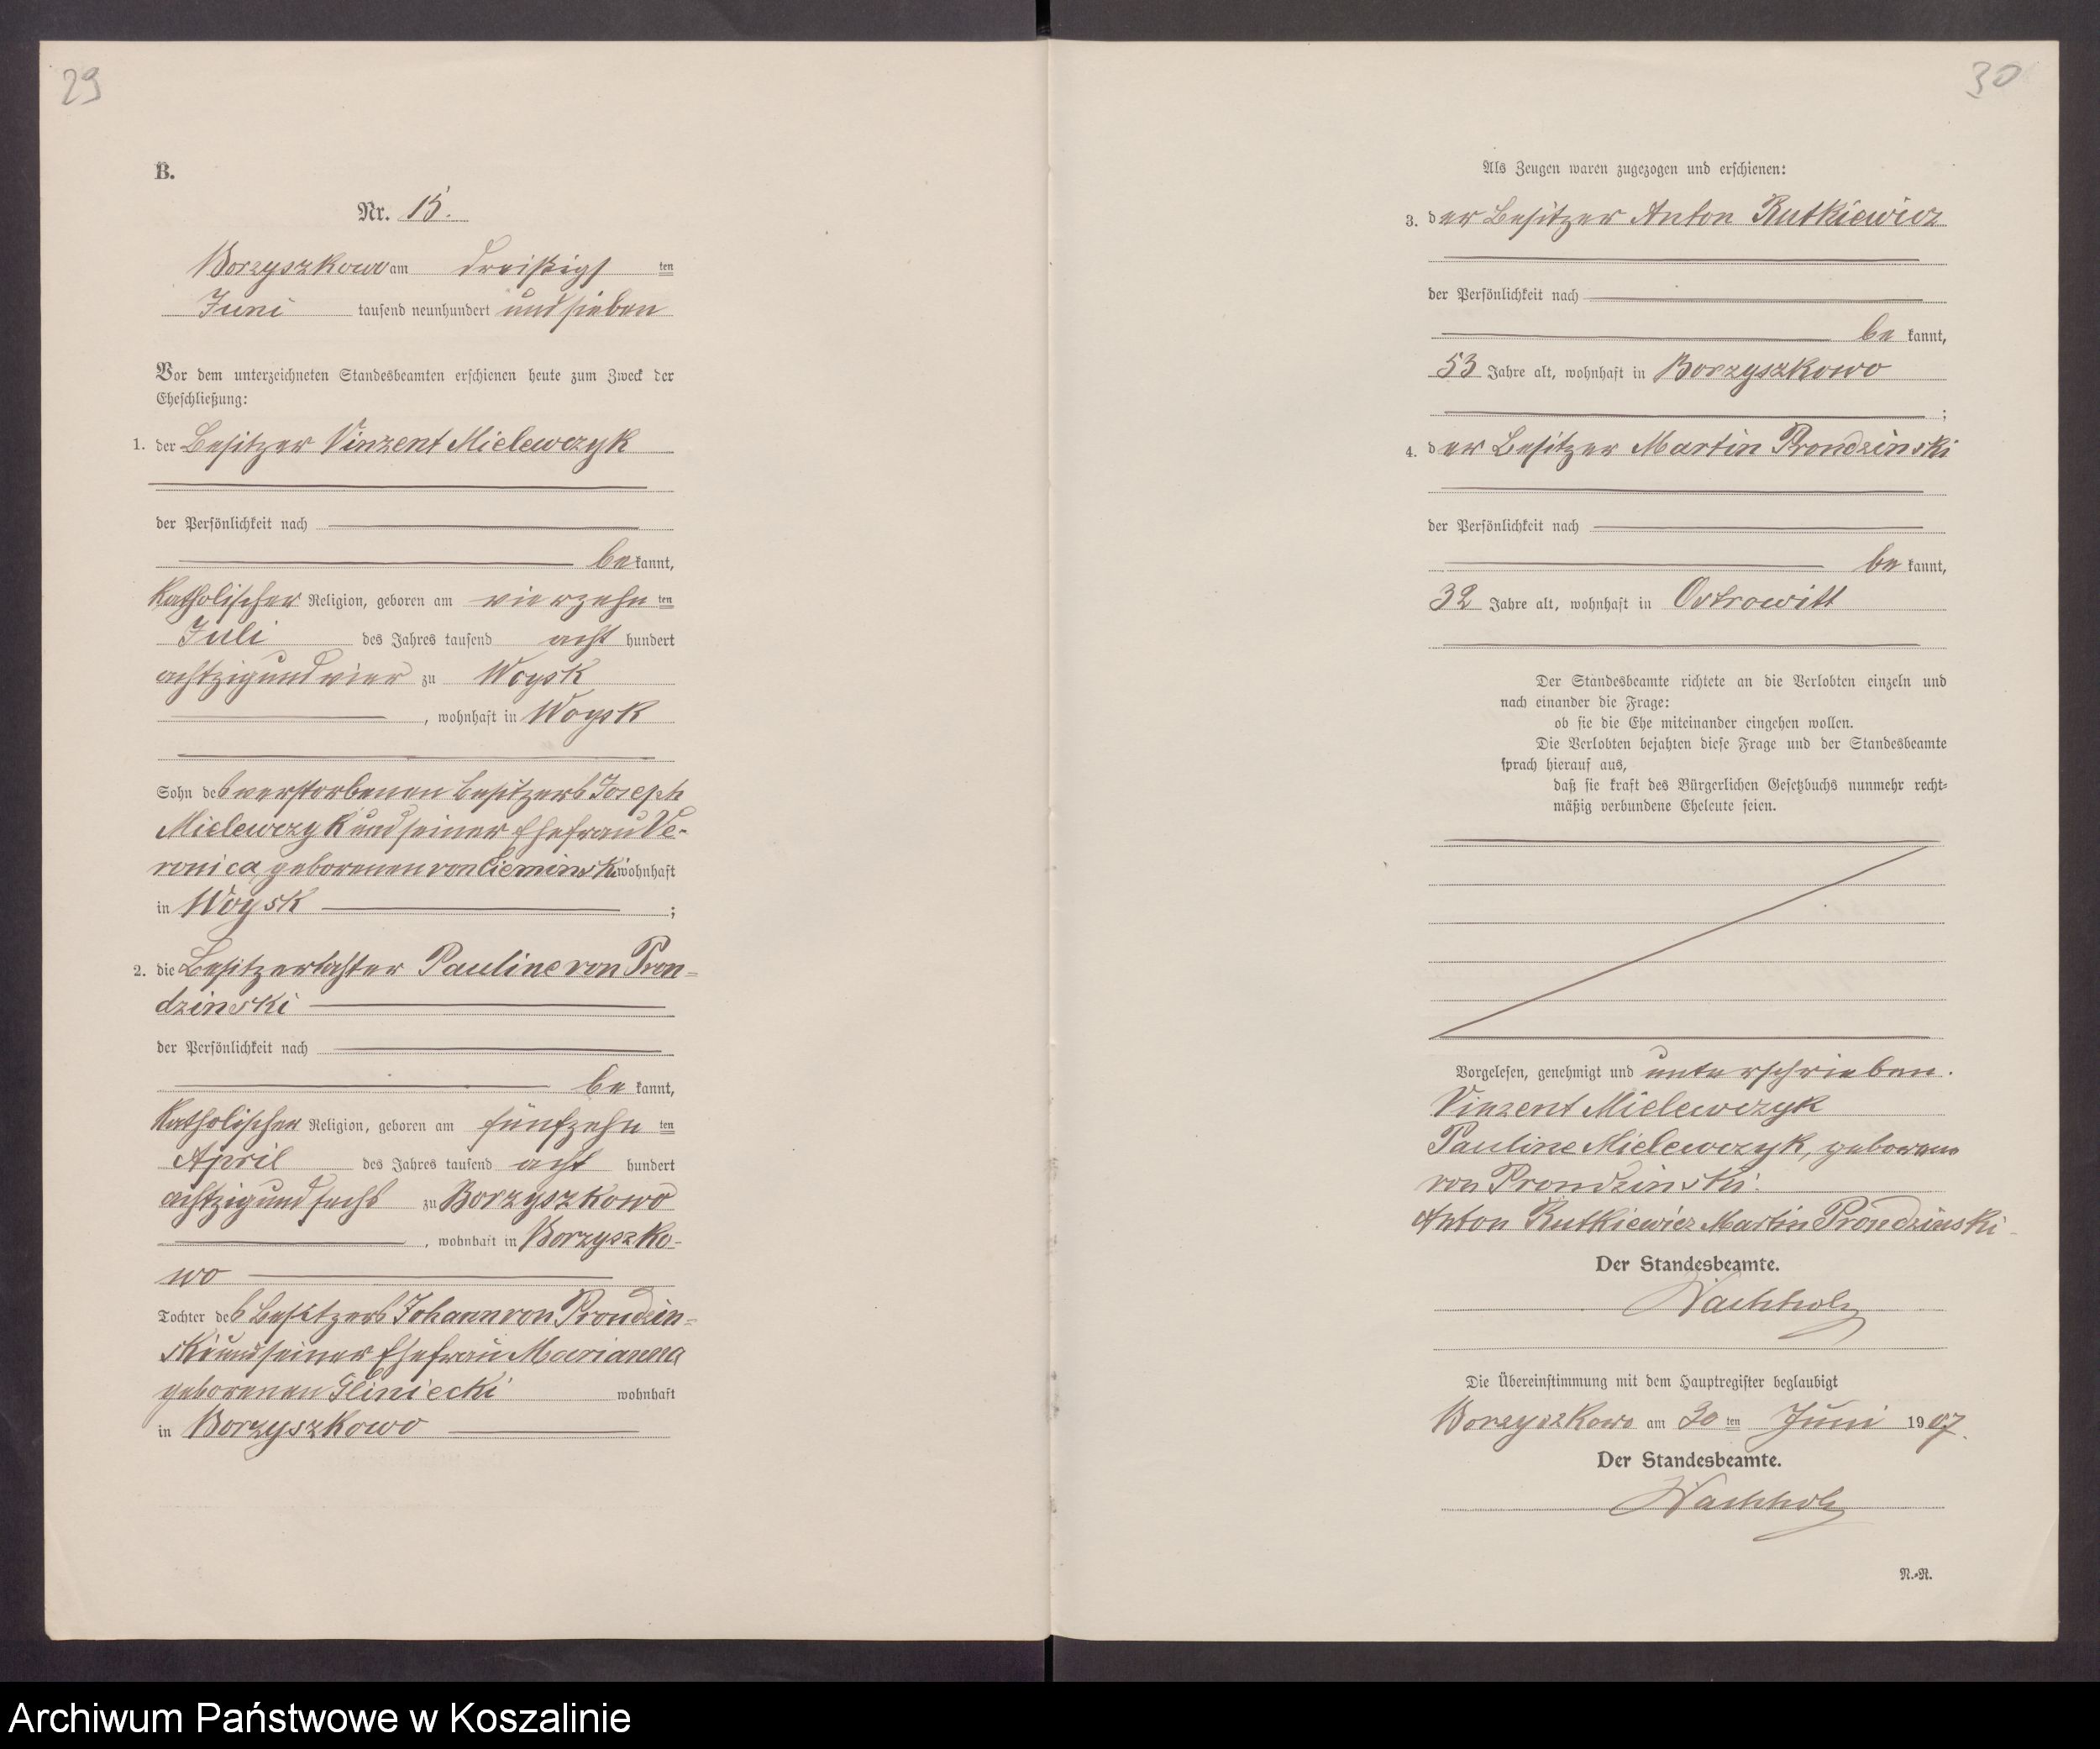 29
B.
Nr. 15.
Borzyszkowo am dreißigs ten
Juni tausend neunhundert und sieben
Vor dem unterzeichneten Standesbeamten erschienen heute zum Zweck der
Eheschließung:
1. der Besitzer Vinzent Mielewczyk
der Persönlichkeit nach
be kannt,
katholischer Religion, geboren am vierzehn ten
Juli des Jahres tausend acht hundert
achtzig und vier zu Woysk
, wohnhaft in Woysk
Sohn des verstorbenen Besitzers Joseph
Mielewczyk und seiner Ehefrau Ve-
ronica, geborenen von Cieminski wohnhaft
in Woysk ;
2. die Besitzertochter Pauline von Pron=
dzinski
der Persönlichkeit nach
be kannt,
katholischer Religion, geboren am fünfzehn ten
April des Jahres tausend acht hundert
achtzig und sechs zu Borzyszkowo
, wohnhaft in Borzyszko-
wo
Tochter des Besitzers Johann von Prondzin=
ski und seiner Ehefrau Marianna
geborenen Gliniecki wohnhaft
in Borzyszkowo
30
Als Zeugen waren zugezogen und erschienen:
3. der Besitzer Anton Rutkiewicz
der Persönlichkeit nach
be kannt,
53 Jahre alt, wohnhaft in Borzyszkowo
;
4. der Besitzer Martin Prondzinski
der Persönlichkeit nach
be kannt,
32 Jahre alt, wohnhaft in Ostrowitt
Der Standesbeamte richtete an die Verlobten einzeln und
nach einander die Frage:
ob sie die Ehe miteinander eingehen wollen.
Die Verlobten bejahten diese Frage und der Standesbeamte
sprach hierauf aus,
daß sie kraft des Bürgerlichen Gesetzbuchs nunmehr recht=
mäßig verbundene Eheleute seien.
Vorgelesen, genehmigt und unterschrieben.
Vinzent Mielewczyk
Pauline Mielewczyk, geborene
von Prondzinski.
Anton Rutkiewicz Martin Prondzinski
Der Standesbeamte.
Wachholz
Die Übereinstimmung mit dem Hauptregister beglaubigt
Borzyszkowo am 30 ten Juni 1907.
Der Standesbeamte.
Wachholz
N.=N.
Archiwum Państwowe w Koszalinie